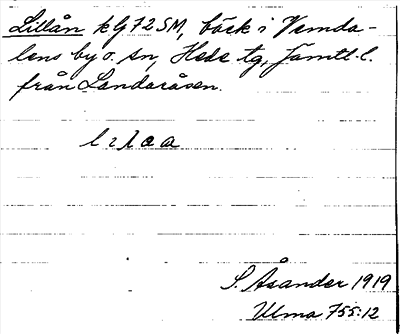 Lillån kG72SM, bäck i Vemda-
lens by o. sn, Hede tg, Jämtl. l.
från Landaråsen.
S. Åsander 1919
Ulma 755:12